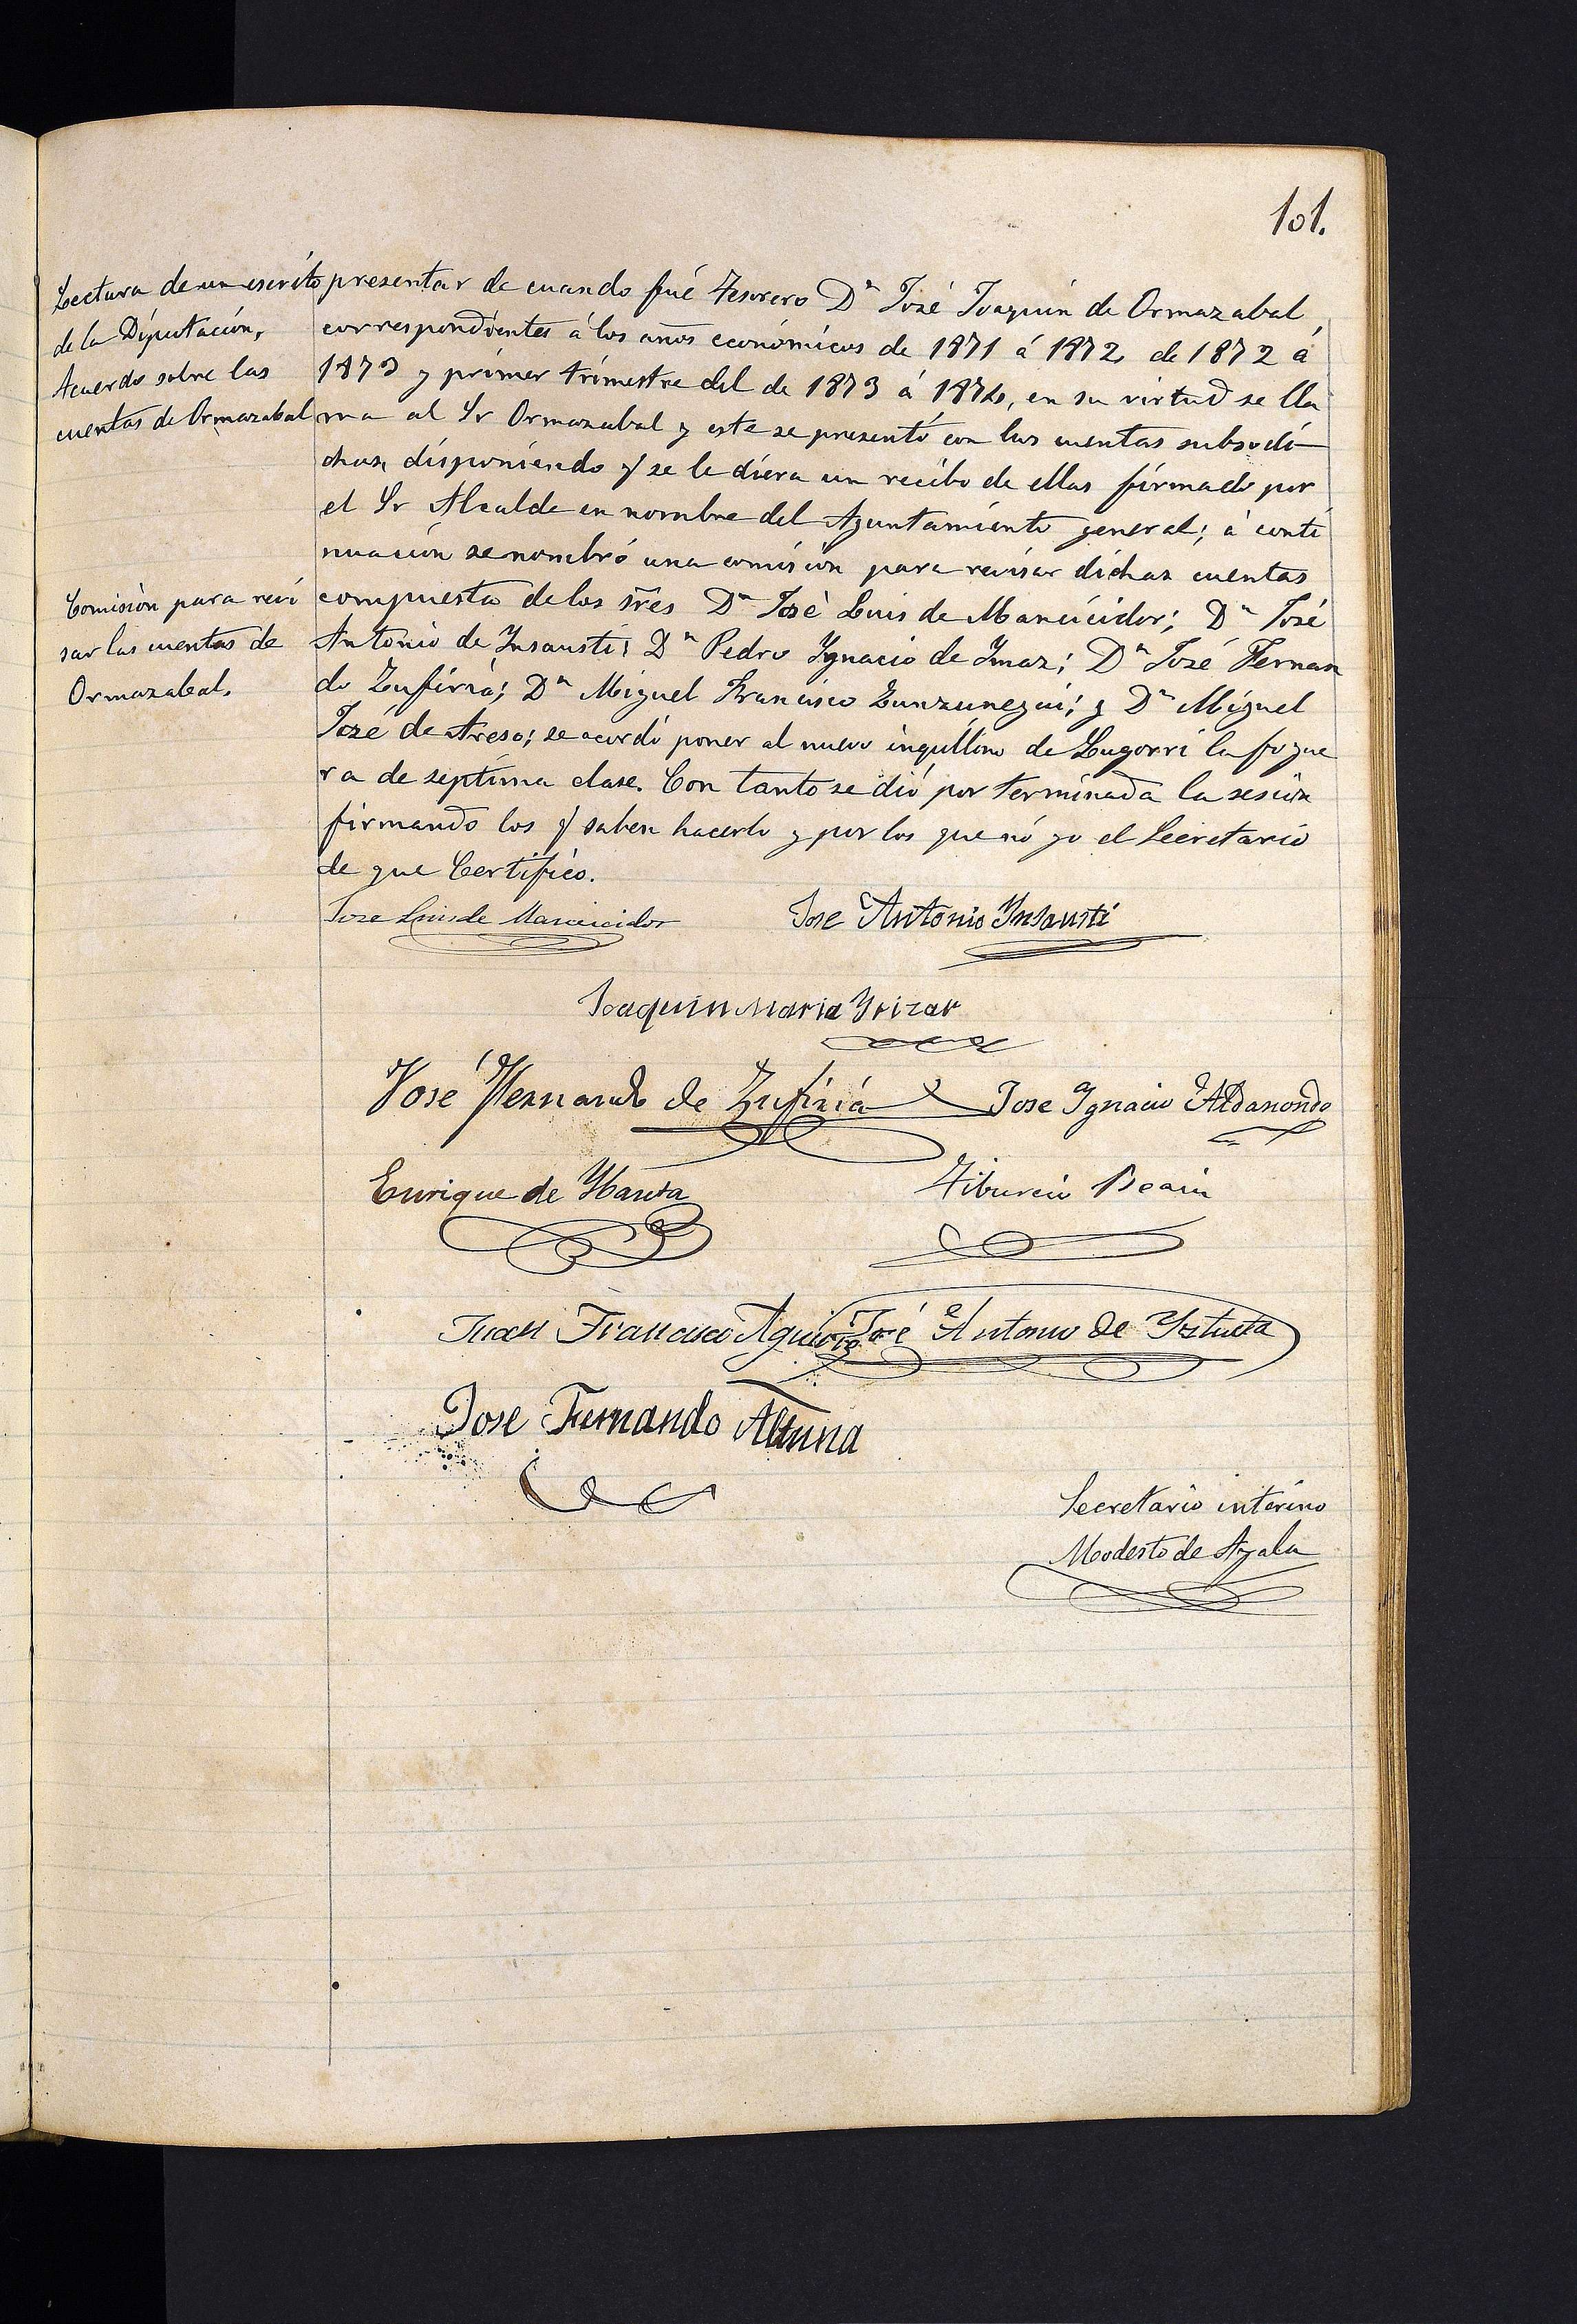 101.
Lectura de un escrito
de la Diputación,
Acuerdo sobre las
cuentas de Ormazabal
Comisión para revi
sar las cuentas de
Ormazabal.
presentar de cuando fué Tesorero Dn José Joaquin de Ormazabal,
correspondientes á los años económicos de 1871 á 1872, de 1872 á
1873 y primer trimestre del de 1873 á 1874, en su virtud se lla
ma al Sr Ormazabal y este se presentó con las cuentas subsodi
chas, disponiendo q/ se le diera un recibo de ellas firmado por
el Sr Alcalde en nombre del Ayuntamiento general; á conti
nuación se nombró una comisión para revisar dichas cuentas
compuesta de los sres Dn José Luis de Mancicidor; Dn José
Antonio de Insausti; Dn Pedro Ygnacio de Ymaz; Dn José Fernan
do Zufiria; Dn Miguel Francisco Zunzunegui; y Dn Miguel
José de Areso; se acordó poner al nuevo inquilino de Lugorri la fogue
ra de septima clase. Con tanto se dió por terminada la sesión
firmando los q/ saben hacerlo y por los que nó yo el Secretario
de que Certifico.
Jose Luis de Mancicidor Jose Antonio Ynsausti
Joaquin Maria Yrizar
José Fernando de Zufiria Jose Ygnacio Aldanondo
Enrique de Tiburcio Beain
Juan Francisco José Antonio de Yztueta
Jose Fernando Altuna
Secretario interino
Modesto de Ayala